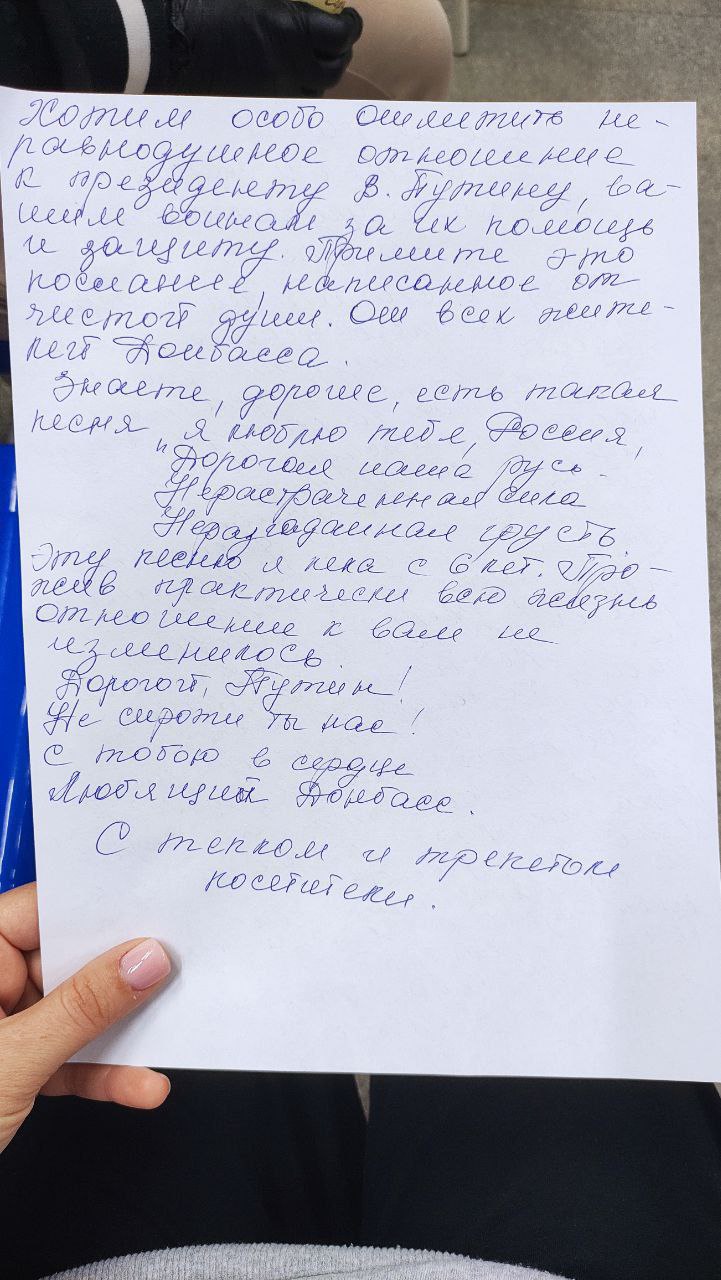 Хотим особо отметить не-
равнодушное отношение
к президенту В. Путину, ва-
шим воинам за их помощь
и защиту. Примите это
послание, написанное от
чистой души. От всех жите-
лей Донбасса.
Знаете, дорогие, есть такая
песня „Я люблю тебя, Россия,
Дорогая наша Русь.
Нерастраченная сила
Неразгаданная грусть
Эту песню я пела с 6 лет. Про-
жив практически всю жизнь
отношение к вам не
изменилось.
Дорогой, Путин!
Не сироти ты нас!
С тобою в сердце
Любящий Донбасс.
С теплом и трепетом
посетители.